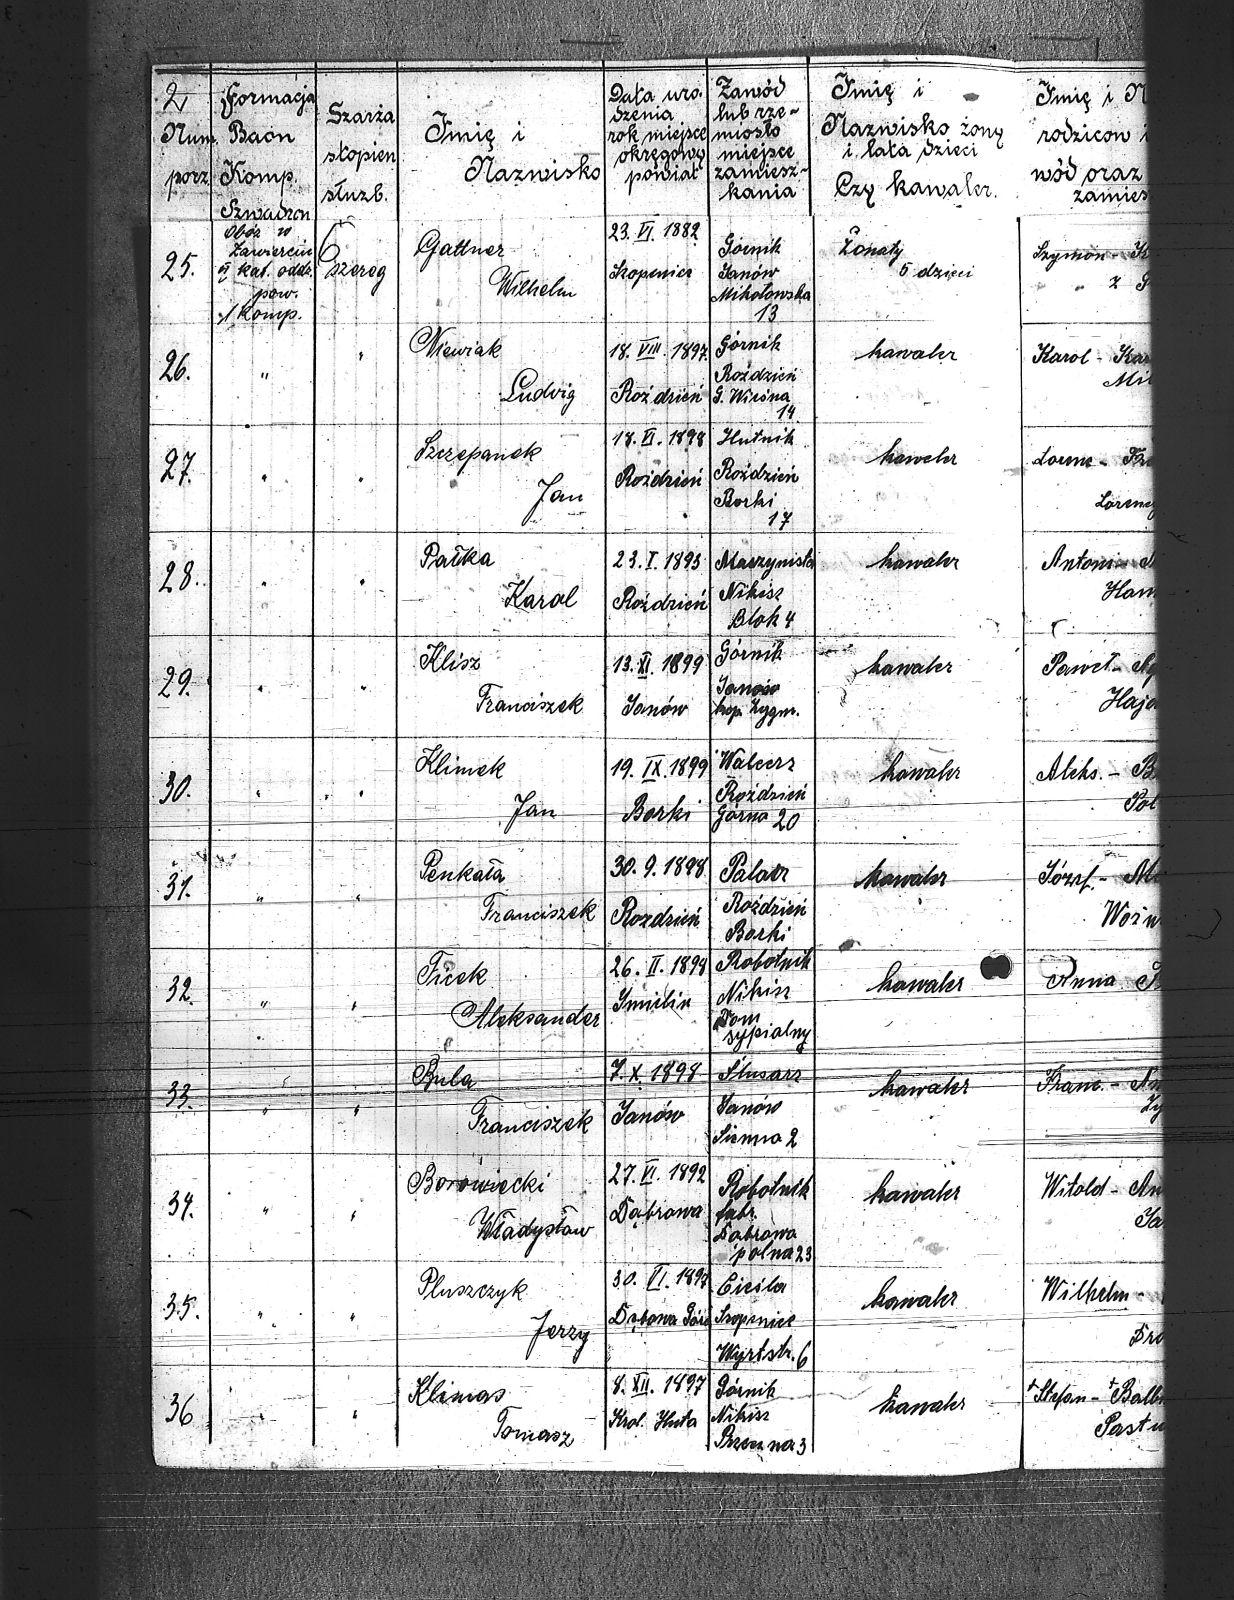 2,
Num. porz.
Formacja Baon Komp. Szwadron
Szarża stopień służb.
Imię i Nazwisko
Data uro-dzenia rok miejsce okręgowy powiat
Zawód lub rze-miosło miejsce zamiesz-kania
Imię i Nazwisko żony i lata dzieci Czy kawaler.
Imię i N
rodzicow
wód oraz
zamies
25.
Obóz w
Zawierciu
kat. oddz.
pow.
1 Komp.
szereg
Gattner
Wilhelm
23. VI. 1882
Szopenice
Górnik
Janów
Mikołowska
13
Żonaty
5 dzieci
Szymon -
" z
26.
"
"
Niewiak
Ludwig
18. VIII. 1897.
Roździeń
Górnik
Roździeń
14
kawaler
Karol - Kar
Mi
27.
"
"
Szczepanek
Jan
18. VI. 1898
Roździeń
Hutnik
Roździeń
Borki
17
kawaler
Lorenc -
Lorency
28.
"
"
Pałka
Karol
23. I. 1893
Roździeń
Maszynista
Nikisz
Blok 4
kawaler
Antoni -
Ham
29.
"
"
Klisz
Franciszek
13. XI. 1899
Janów
Górnik
Janów
kop. Zygm.
kawaler
Paweł -
Hajd
30.
"
"
Klimek
Jan
19. IX. 1899
Borki
Walcerz
Roździeń
Górna 20
kawaler
Aleks. - B
Pol
31.
"
"
Penkała
Franciszek
30. 9. 1898
Rozdzień
Palacz
Roździeń
Borki
kawaler
Józef. -
Woźn
32.
"
"
Ficek
Aleksander
26. II. 1898
Imielin
Robotnik
Nikisz
Dom
sypialny
kawaler
Anna
33.
"
"
Bula
Franciszek
7. X. 1898
Janów
Ślusarz
Janów
Sienna 2
kawaler
Franc. -
34.
"
"
Borowiecki
Władysław
27. VI. 1892
Dąbrowa
Robotnik
fabr.
Dąbrowa
polna 23
kawaler
Witold - An
35.
"
"
Pluszczyk
Jerzy
30. VI. 1897
Dąbowa Góra
Cieśla
Szopenice
Wyrtstr. 6
kawaler
Wilhelm -
36
"
"
Klimas
Tomasz
8. XII. 1897
Krol. Huta
Górnik
Nikisz
Poczena 3
kawaler
+Stefan - +Balb
Pastu